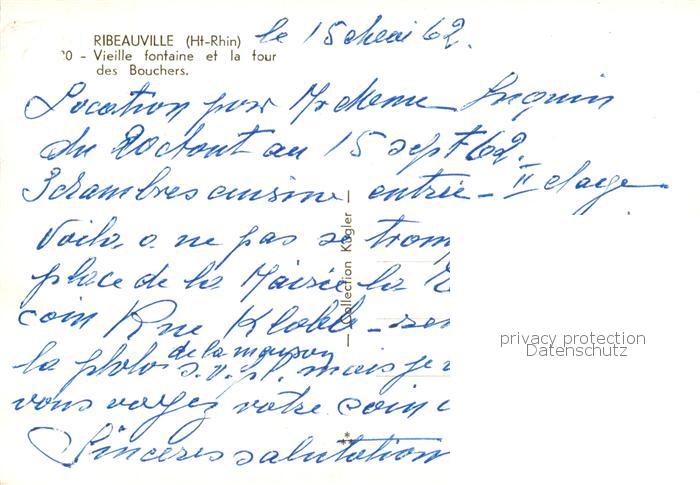 RIBEAUVILLE (Ht-Rhin)
le 15 mai 62.
20 - Vieille fontaine et la tour
des Bouchers.
Location pour Mr et Mme
du 20 aout au 15 sept 62.
3 chambres cuisine entrée - II etage
Voila, a ne pas se trom
place de la Mairie la
coin Rue Klobb -
la photo de la maison
s.v.pl. mais je
vous voyez votre coin
Sinceres salutation
— Collection Kugler —
privacy protection
Datenschutz